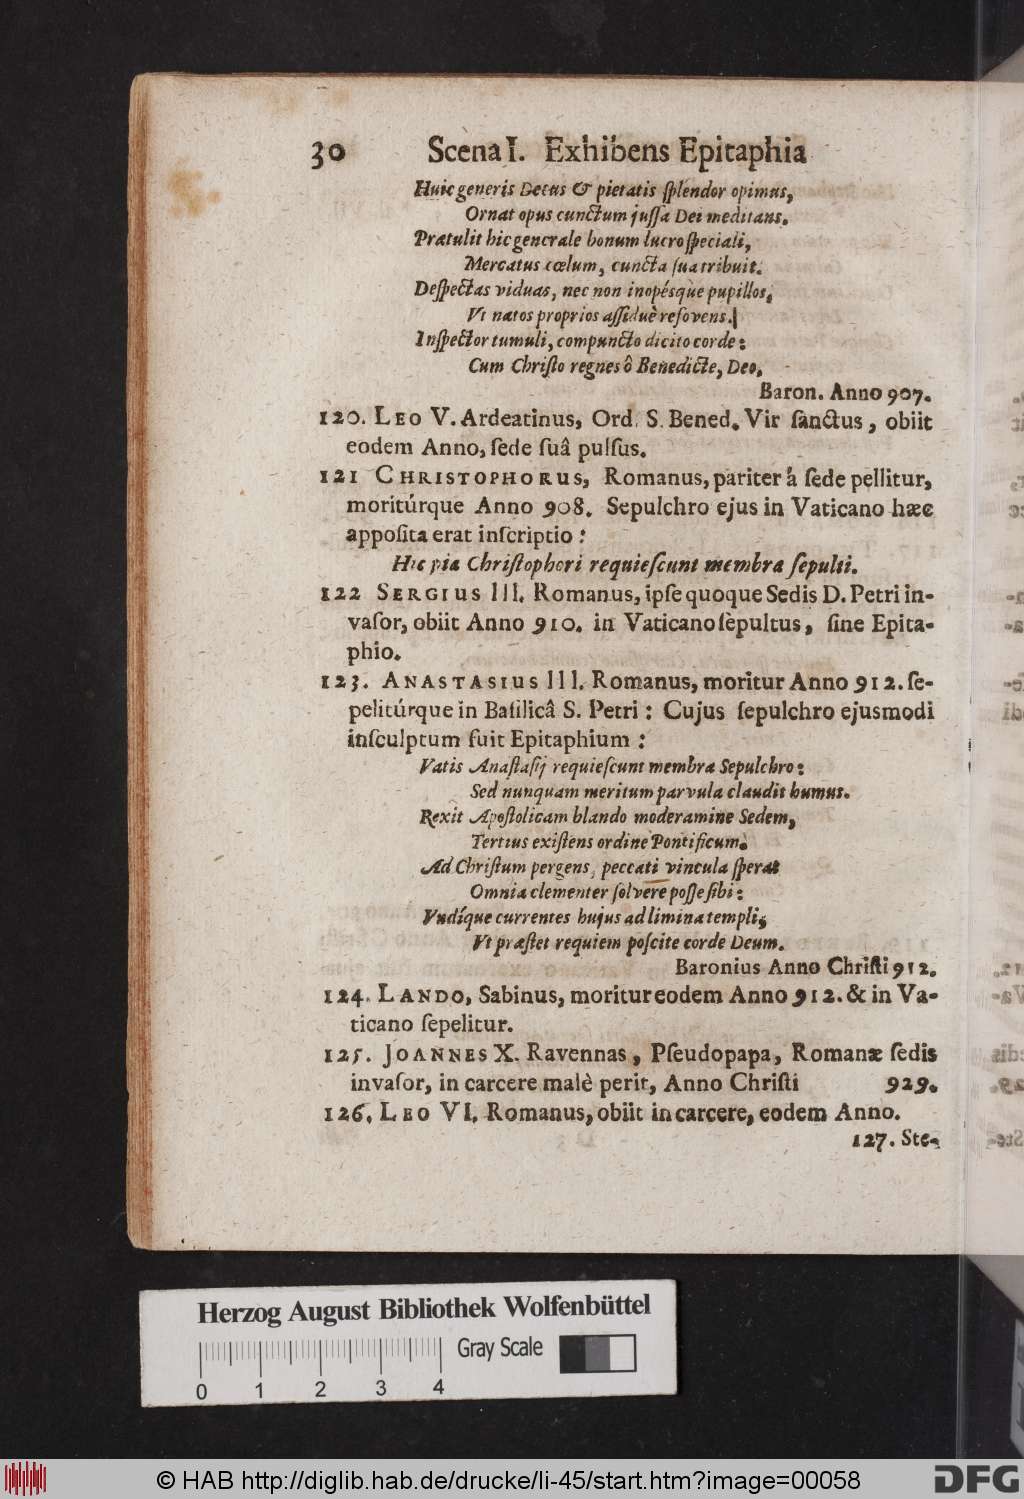 30 Scena I. Exhibens Epitaphia
Huic generis Decus & pietatis ſplendor opimus,
Ornat opus cunctum juſſa Dei meditans.
Prætulit hic generale bonum lucro ſpeciali,
Mercatus cœlum, cuncta ſua tribuit.
Deſpectas viduas, nec non inopésque pupillos,
Vt natos proprios aſſiduè refovens.
Inſpector tumuli, compuncto dicito corde:
Cum Chriſto regnes ô Benedicte, Deo.
Baron. Anno 907.
120. LEO V. Ardeatinus, Ord. S. Bened. Vir ſanctus, obiit
eodem Anno, ſede ſuâ pulſus.
121 CHRISTOPHORUS, Romanus, pariter á ſede pellitur,
moritúrque Anno 908. Sepulchro ejus in Vaticano hæc
appoſita erat inſcriptio:
Hic pia Chriſtophori requieſcunt membra ſepulti.
122 SERGIUS III. Romanus, ipſe quoque Sedis D. Petri in-
vaſor, obiit Anno 910. in Vaticano ſèpultus, ſine Epita-
phio.
123. ANASTASIUS III. Romanus, moritur Anno 912. ſe-
pelitúrque in Baſilicâ S. Petri: Cujus ſepulchro ejusmodi
inſculptum fuit Epitaphium:
Vatis Anaſtaſij requieſcunt membra Sepulchro:
Sed nunquam meritum parvula claudit humus.
Rexit Apoſtolicam blando moderamine Sedem,
Tertius exiſtens ordine Pontificum.
Ad Chriſtum pergens, peccati vincula ſperat
Omnia clementer ſolvere poſſe ſibi:
Vndíque currentes hujus ad limina templi,
Vt præſtet requiem poſcite corde Deum.
Baronius Anno Chriſti 912.
124. LANDO, Sabinus, moritur eodem Anno 912. & in Va-
ticano ſepelitur.
125. JOANNES X. Ravennas, Pſeudopapa, Romanæ ſedis
invaſor, in carcere malè perit, Anno Chriſti 929.
126. LEO VI. Romanus, obiit in carcere, eodem Anno.
127. Ste-
Herzog August Bibliothek Wolfenbüttel
Gray Scale
0 1 2 3 4
© HAB http://diglib.hab.de/drucke/li-45/start.htm?image=00058
DFG